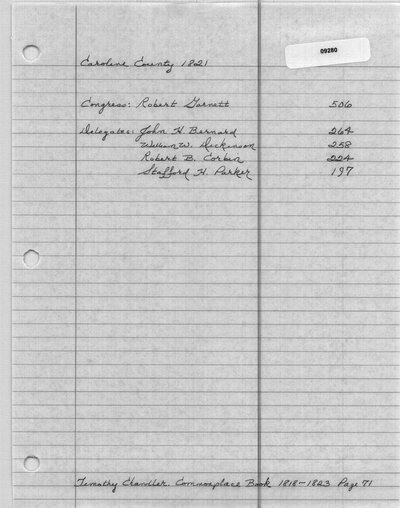 09280
Caroline County 1821
Congress: Robert Garnett 506
Delegates: John H Bernard 264
William W. Dickinson 258
Robert B. Corbin 224
Stafford H. Parker 197
Timothy Chandler. Commonplace Book 1818-1823 Page 71